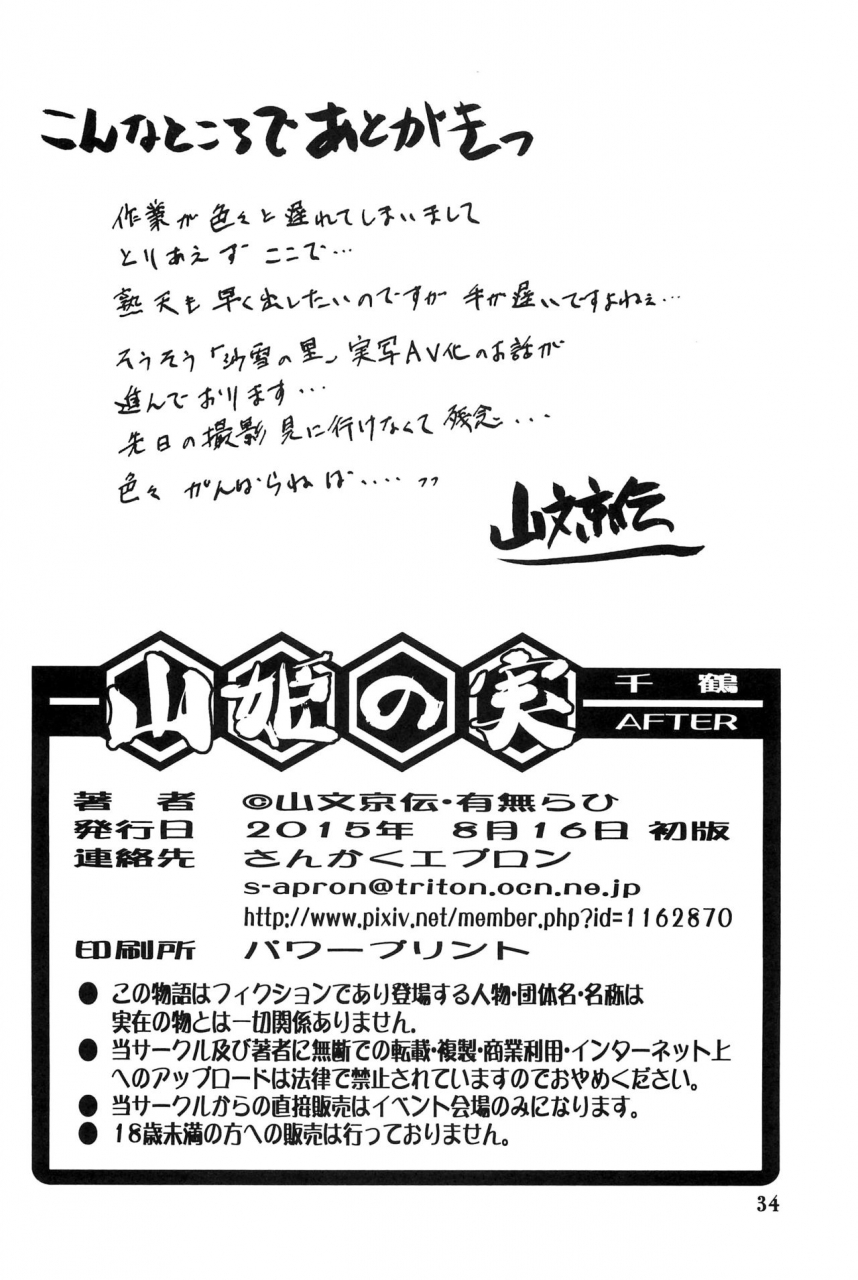 こんなところであとがきっ
作業が色々と遅れてしまいまして
とりあえず ここで…
熟天も早く出したいのですが 手が遅いですよねぇ…
そうそう「沙雪の里」実写AV化のお話が
進んでおります…
先日の撮影見に行けなくて残念...
色々 がんばらねば....ッッ
山文京伝
山姫の実
千鶴
AFTER
著者 ©山文京伝・有無らひ
発行日 2015年 8月16日 初版
連絡先 さんかくエプロン
s-apron@triton.ocn.ne.jp
http://www.pixiv.net/member.php?id=1162870
印刷所 パワープリント
● この物語はフィクションであり登場する人物・団体名・名称は
実在の物とは一切関係ありません.
● 当サークル及び著者に無断での転載・複製・商業利用・インターネット上
へのアップロードは法律で禁止されていますのでおやめください。
● 当サークルからの直接販売はイベント会場のみになります。
● 18歳未満の方への販売は行っておりません。
34